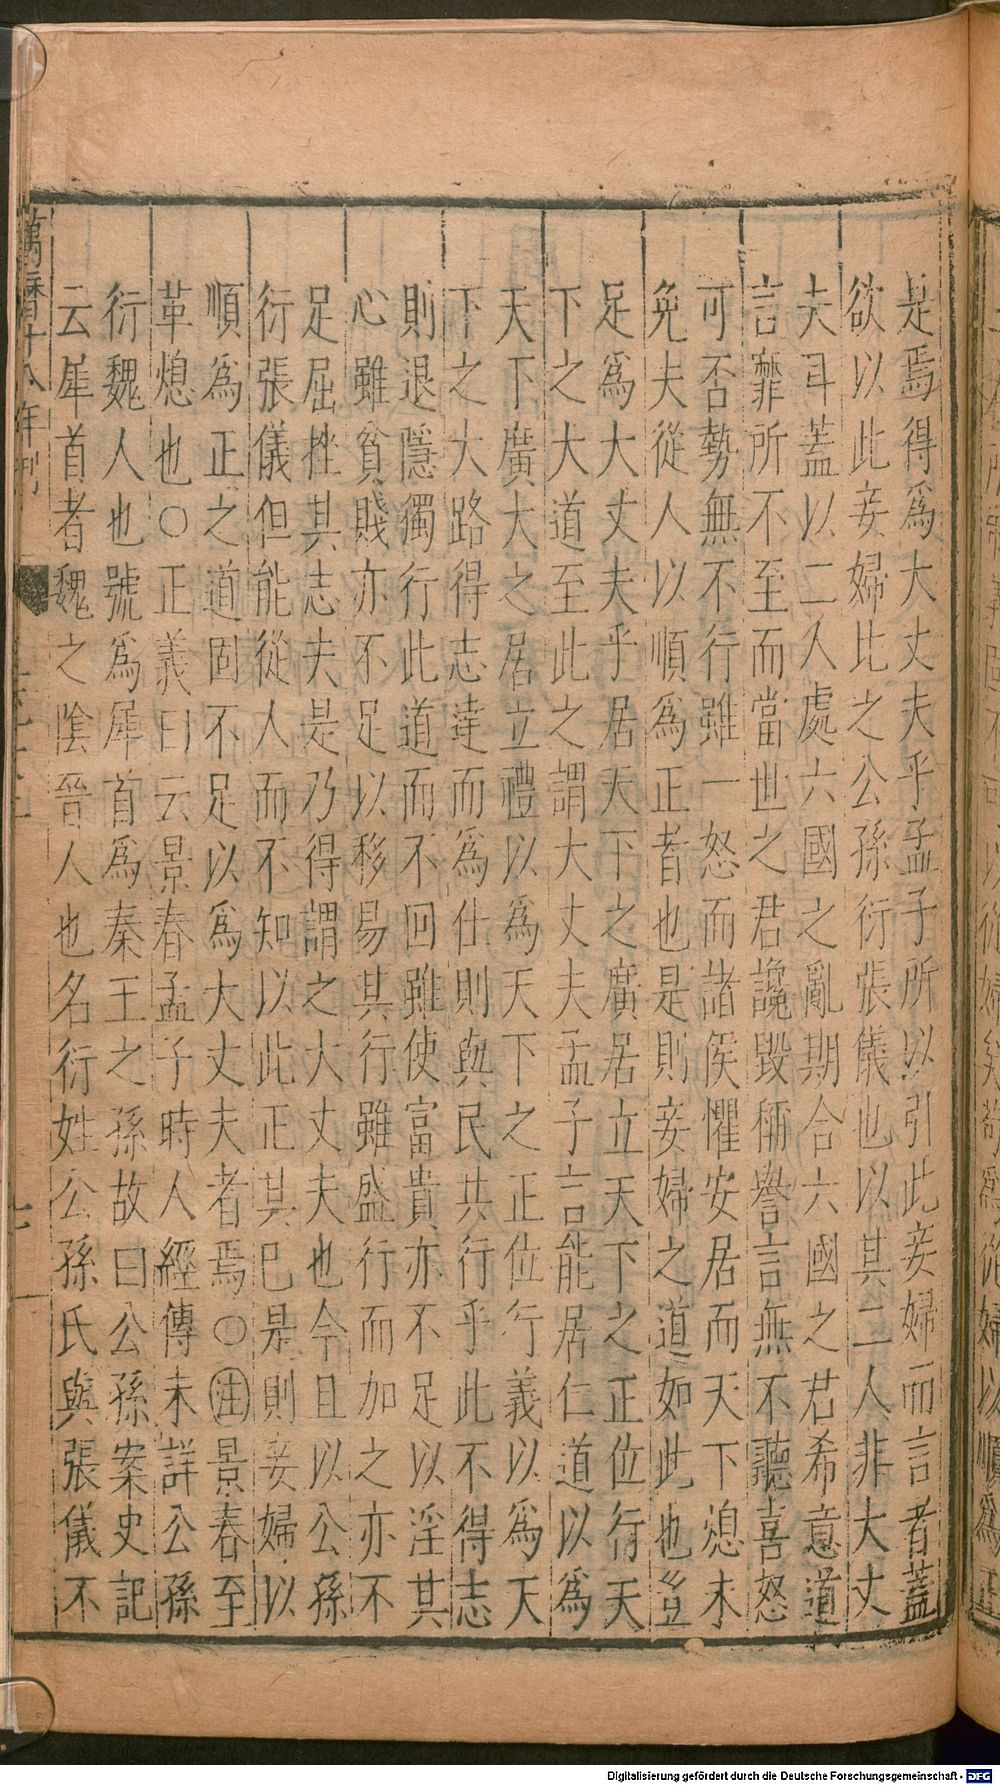 是焉得爲大丈夫乎孟子所以引此妾婦而言者蓋
欲以此妾婦比之公孫衍張儀也以其二人非大丈
夫耳蓋以二人處六國之亂期合六國之君希意道
言靡所不至而當世之君讒毀稱譽言無不聽喜怒
可否勢無不行雖一怒而諸侯懼安居而天下熄未
免夫從人以順爲正者也是則妾婦之道如此也豈
足爲大丈夫乎居天下之廣居立天下之正位行天
下之大道至此之謂大丈夫孟子言能居仁道以爲
天下廣大之居立禮以爲天下之正位行義以爲天
下之大路得志達而爲仕則與民共行乎此不得志
則退隱獨行此道而不回雖使富貴亦不足以淫其
心雖貧賤亦不足以移易其行雖盛行而加之亦不
足屈挫其志夫是乃得謂之大丈夫也今且以公孫
衍張儀但能從人而不知以此正其巳是則妾婦以
順爲正之道固不足以爲大丈夫者焉○注景春至
革熄也○正義曰云景春孟子時人經傳未詳公孫
衍魏人也號爲犀首爲秦王之孫故曰公孫案史記
云犀首者魏之陰晉人也名衍姓公孫氏與張儀不
萬曆十八年刊
七
Digitalisierung gefördert durch die Deutsche Forschungsgemeinschaft - DFG